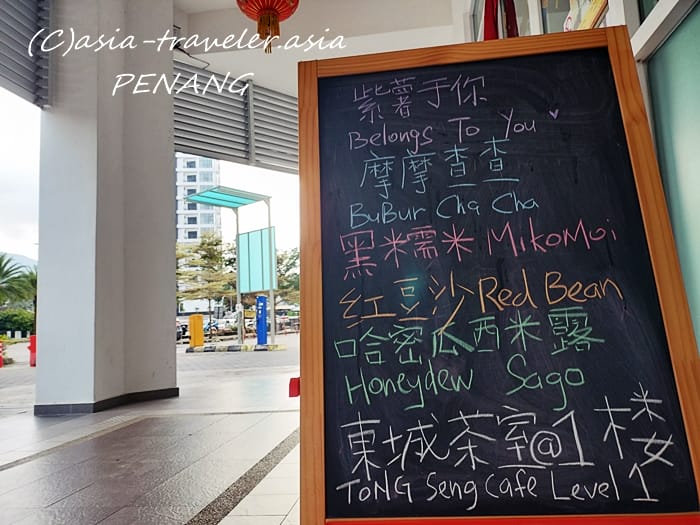 (C)asia-traveler.asia
PENANG
紫薯于你
Belongs To You
摩摩查查
BuBur Cha Cha
黑糯米 MikoMoi
红豆沙 Red Bean
哈密瓜西米露
Honeydew Sago
東城茶室@1楼
ToNG Seng Cafe Level 1